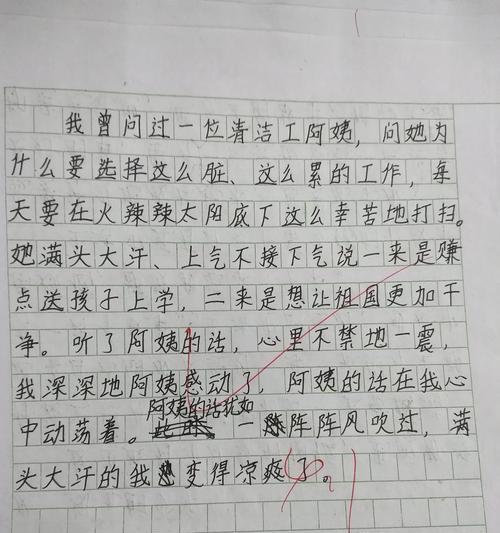 我曾问过一位清洁工阿姨，问她为
什么要选择这么脏、这么累的工作，每
天要在火辣辣太阳底下这么幸苦地打扫。
她满头大汗、上气不接下气说一来是赚
点送孩子上学，二来是想让祖国更加干
净。听了阿姨的话，心里不禁地一震，
我深深地阿姨感动了，阿姨的话在我心
阿姨的话犹如
中动荡着。一阵阵风吹过，满
头大汗的我变得凉爽了。